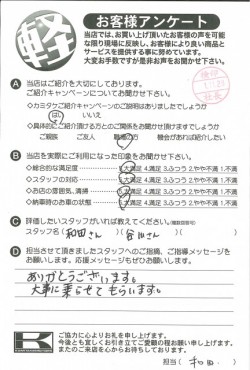 軽
お客様アンケート
当店では、お買い上げ頂いたお客様の声を可能
な限り現場に反映し、お客様により良い商品と
サービスを提供する事に努めています。
大変お手数ですが是非お声をお聞かせ下さい。
A 当店はご紹介を大切にしております。
ご紹介キャンペーンについてお聞かせ下さい。
◇カミタケご紹介キャンペーンのご説明はありましたでしょうか
はい いいえ
◇具体的にご紹介頂ける方とのご関係をお聞かせ頂けますでしょうか
ご親族 ご友人 機会があれば紹介したい
B 当店を実際にご利用になった印象をお聞かせ下さい。
◇総合的な満足度 4.満足 3.ふつう 2.やや不満 1.不満
◇スタッフの対応 4.満足 3.ふつう 2.やや不満 1.不満
◇お店の雰囲気、清掃 4.満足 3.ふつう 2.やや不満 1.不満
◇納車時のお車の状態 4.満足 3.ふつう 2.やや不満 1.不満
C 評価したいスタッフがいれば教えてください。(複数回答可)
スタッフ名( 和田さん )( 谷川さん )
D 担当させて頂きましたスタッフへのご指摘、ご指導メッセージを
お願いします。応援メッセージもぜひお願いします。
ありがとうございます。
大事に乗らせてもらいます。
K
ご協力に心よりお礼を申し上げます。
今後とも宜しくお引き立てご愛顧の程お願い申し上げます。
またのご来店を心からお待ちしております。
担当( 和田 )